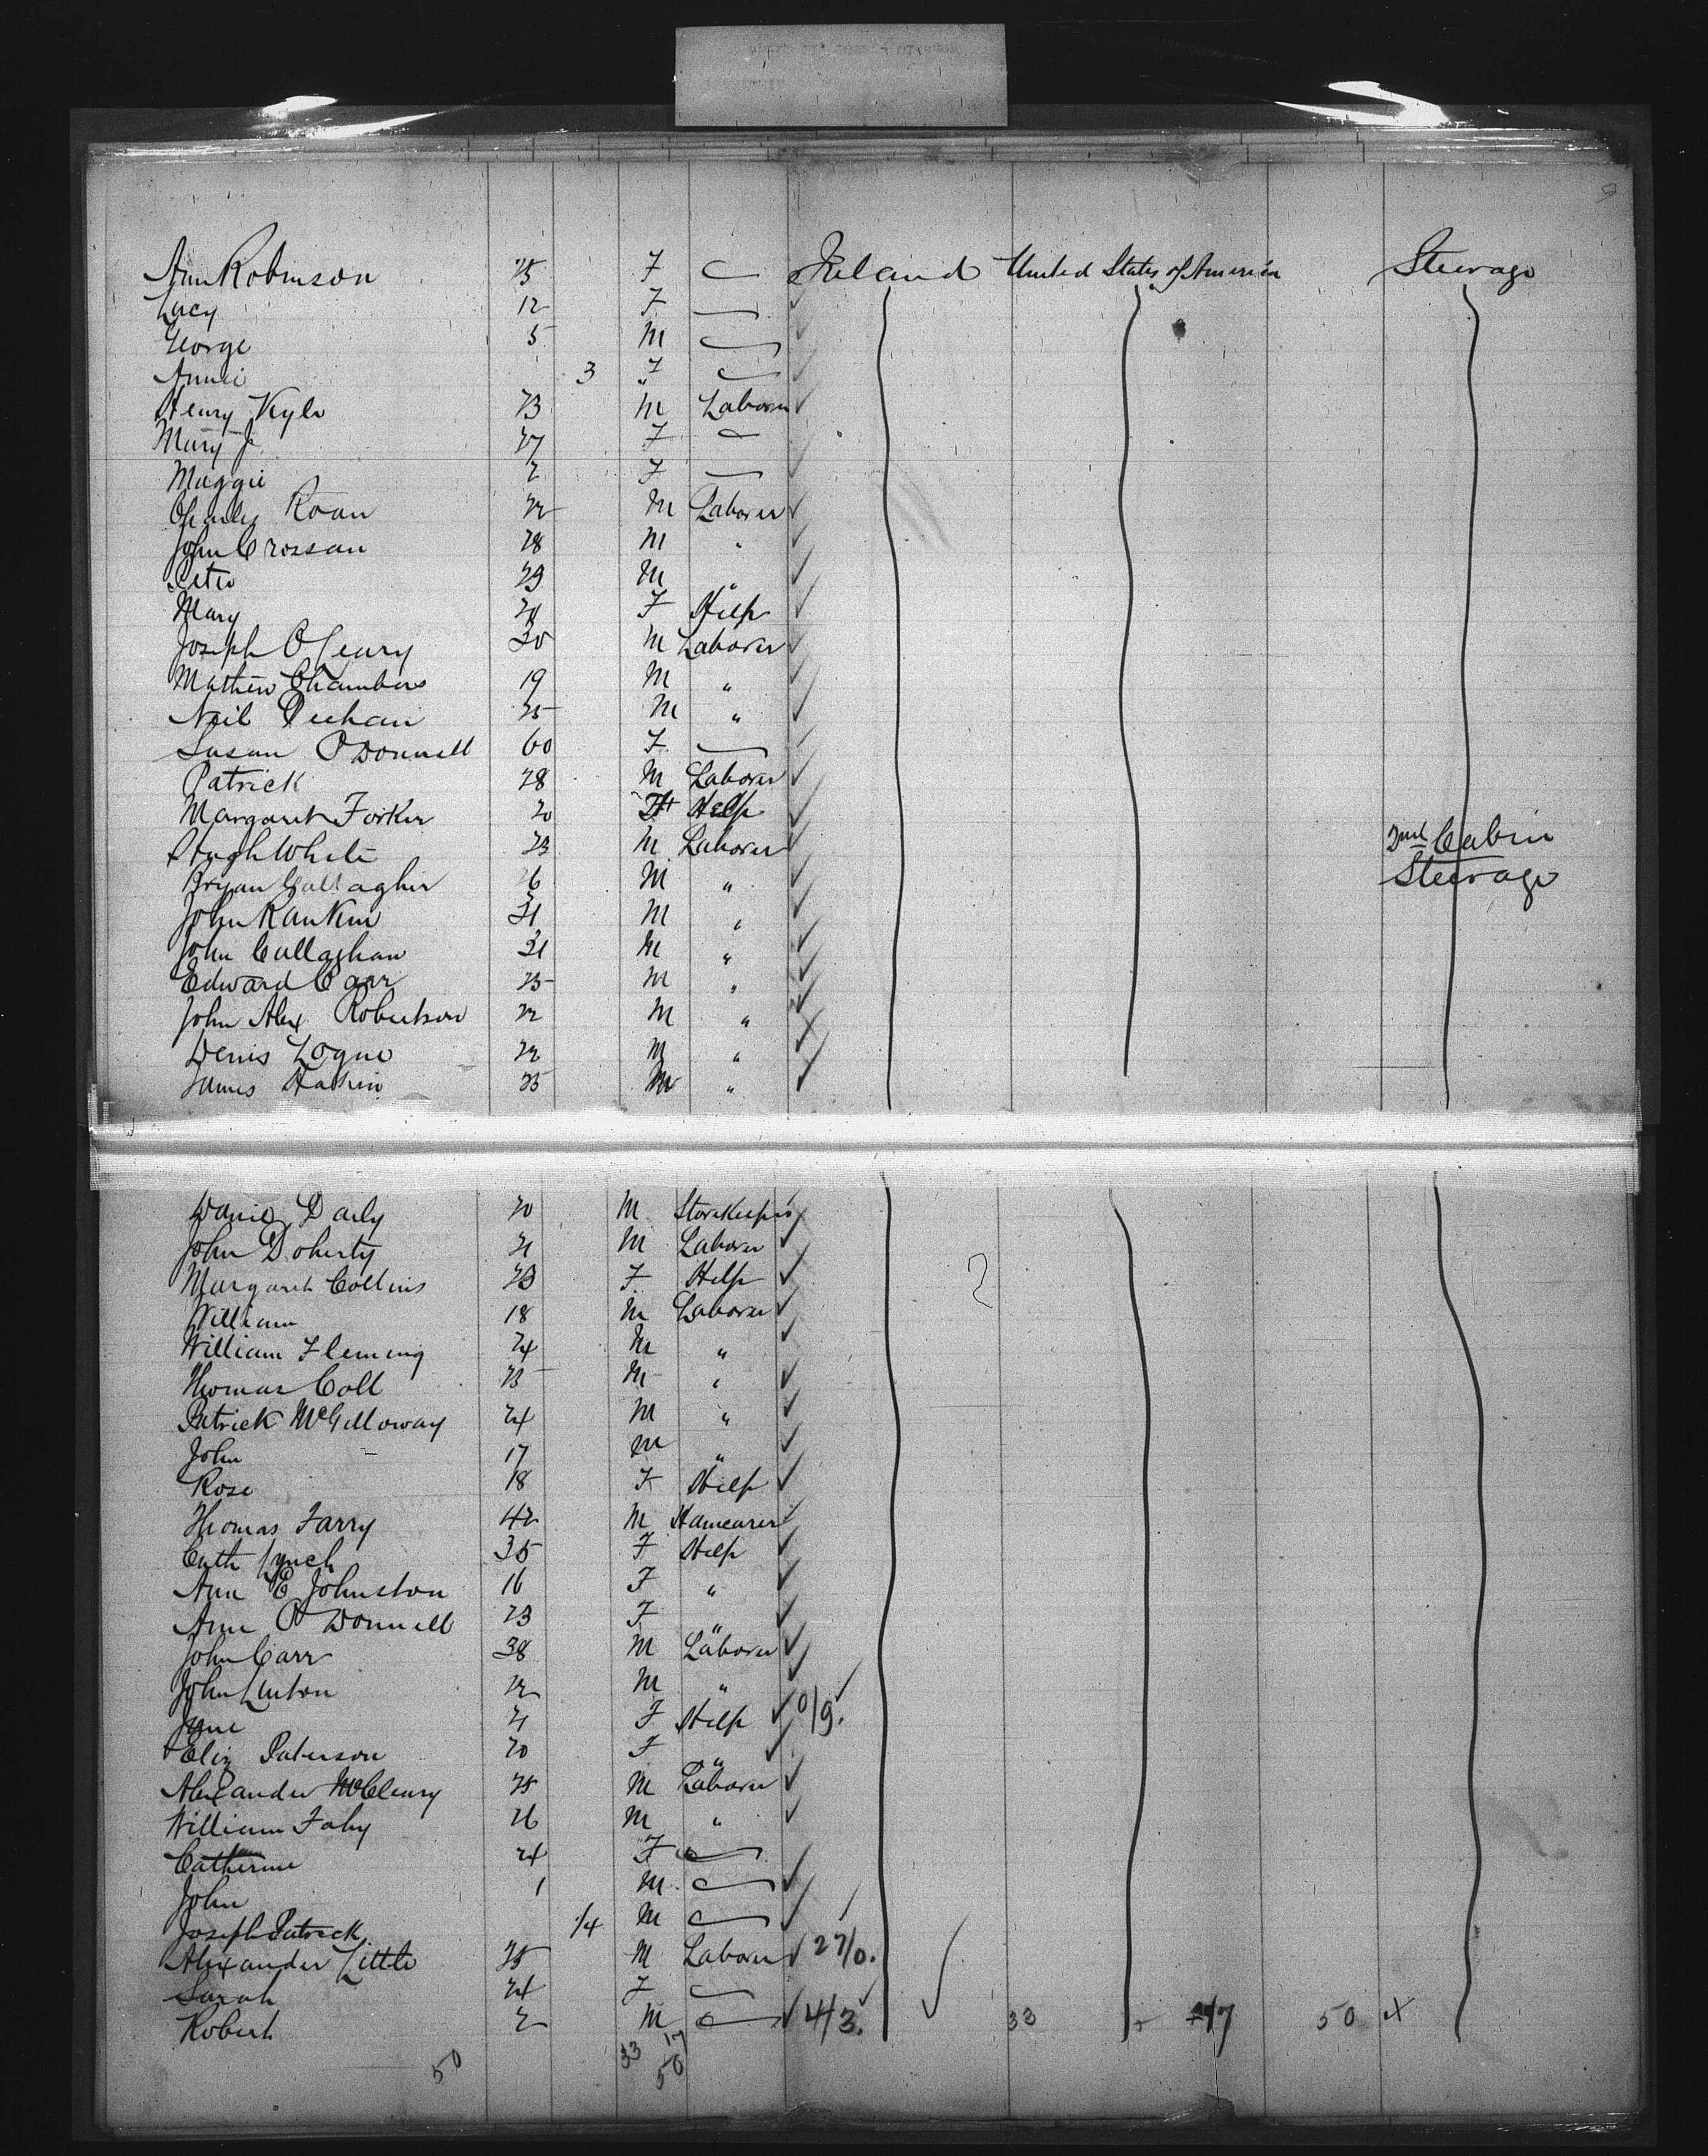 Ann Robinson 25 F Ireland United States of America Steerage
Lucy 12 F
George 5 M
Annie 3 F
Henry Kyle 23 M Laborer
Mary J. 27 F
Maggie 2 F
Charles Roan 22 M Laborer
John Crossan 28 M "
Peter 29 M "
Mary F Help
Joseph O'Leary 30 M Laborer
Mathew Chambers 19 M "
Neil Deehan 25 M "
Susan O'Donnell 60 F
Patrick 28 M Laborer
Margaret Forker 20 F Help
Hugh White 23 M Laborer 2nd Cabin
Bryan Gallagher 26 M " Steerage
John Rankin 21 M "
John Callaghan 21 M "
Edward Carr 25 M "
John Alex Robertson 22 M "
Denis Logue 22 M "
James 25 M "
Daniel 20 M Storekeeper
John Doherty 21 M Laborer
Margaret Collins 23 F Help
William 18 M Laborer
William Fleming 24 M "
Thomas Coll 25 M "
Patrick McGilloway 24 M "
John 17 M "
Rose 18 F Help
Thomas Farry 42 M
Cath Lynch 35 F Help
Ann E Johnston 16 F "
Ann O'Donnell 23 F "
John Carr 38 M Laborer
John Linton 22 M "
Jane 21 F Help 0/9.
Eliz Paterson 20 F "
Alexander McCleary 25 M Laborer
William Fahy 26 M "
Catherine 24 F
John 1 M
Joseph Patrick 1/4 M
Alexander Little 25 M Laborer 27/0.
Sarah 24 F
Robert 2 M 4/3. 33 + 17 50 x
50 33 17
50